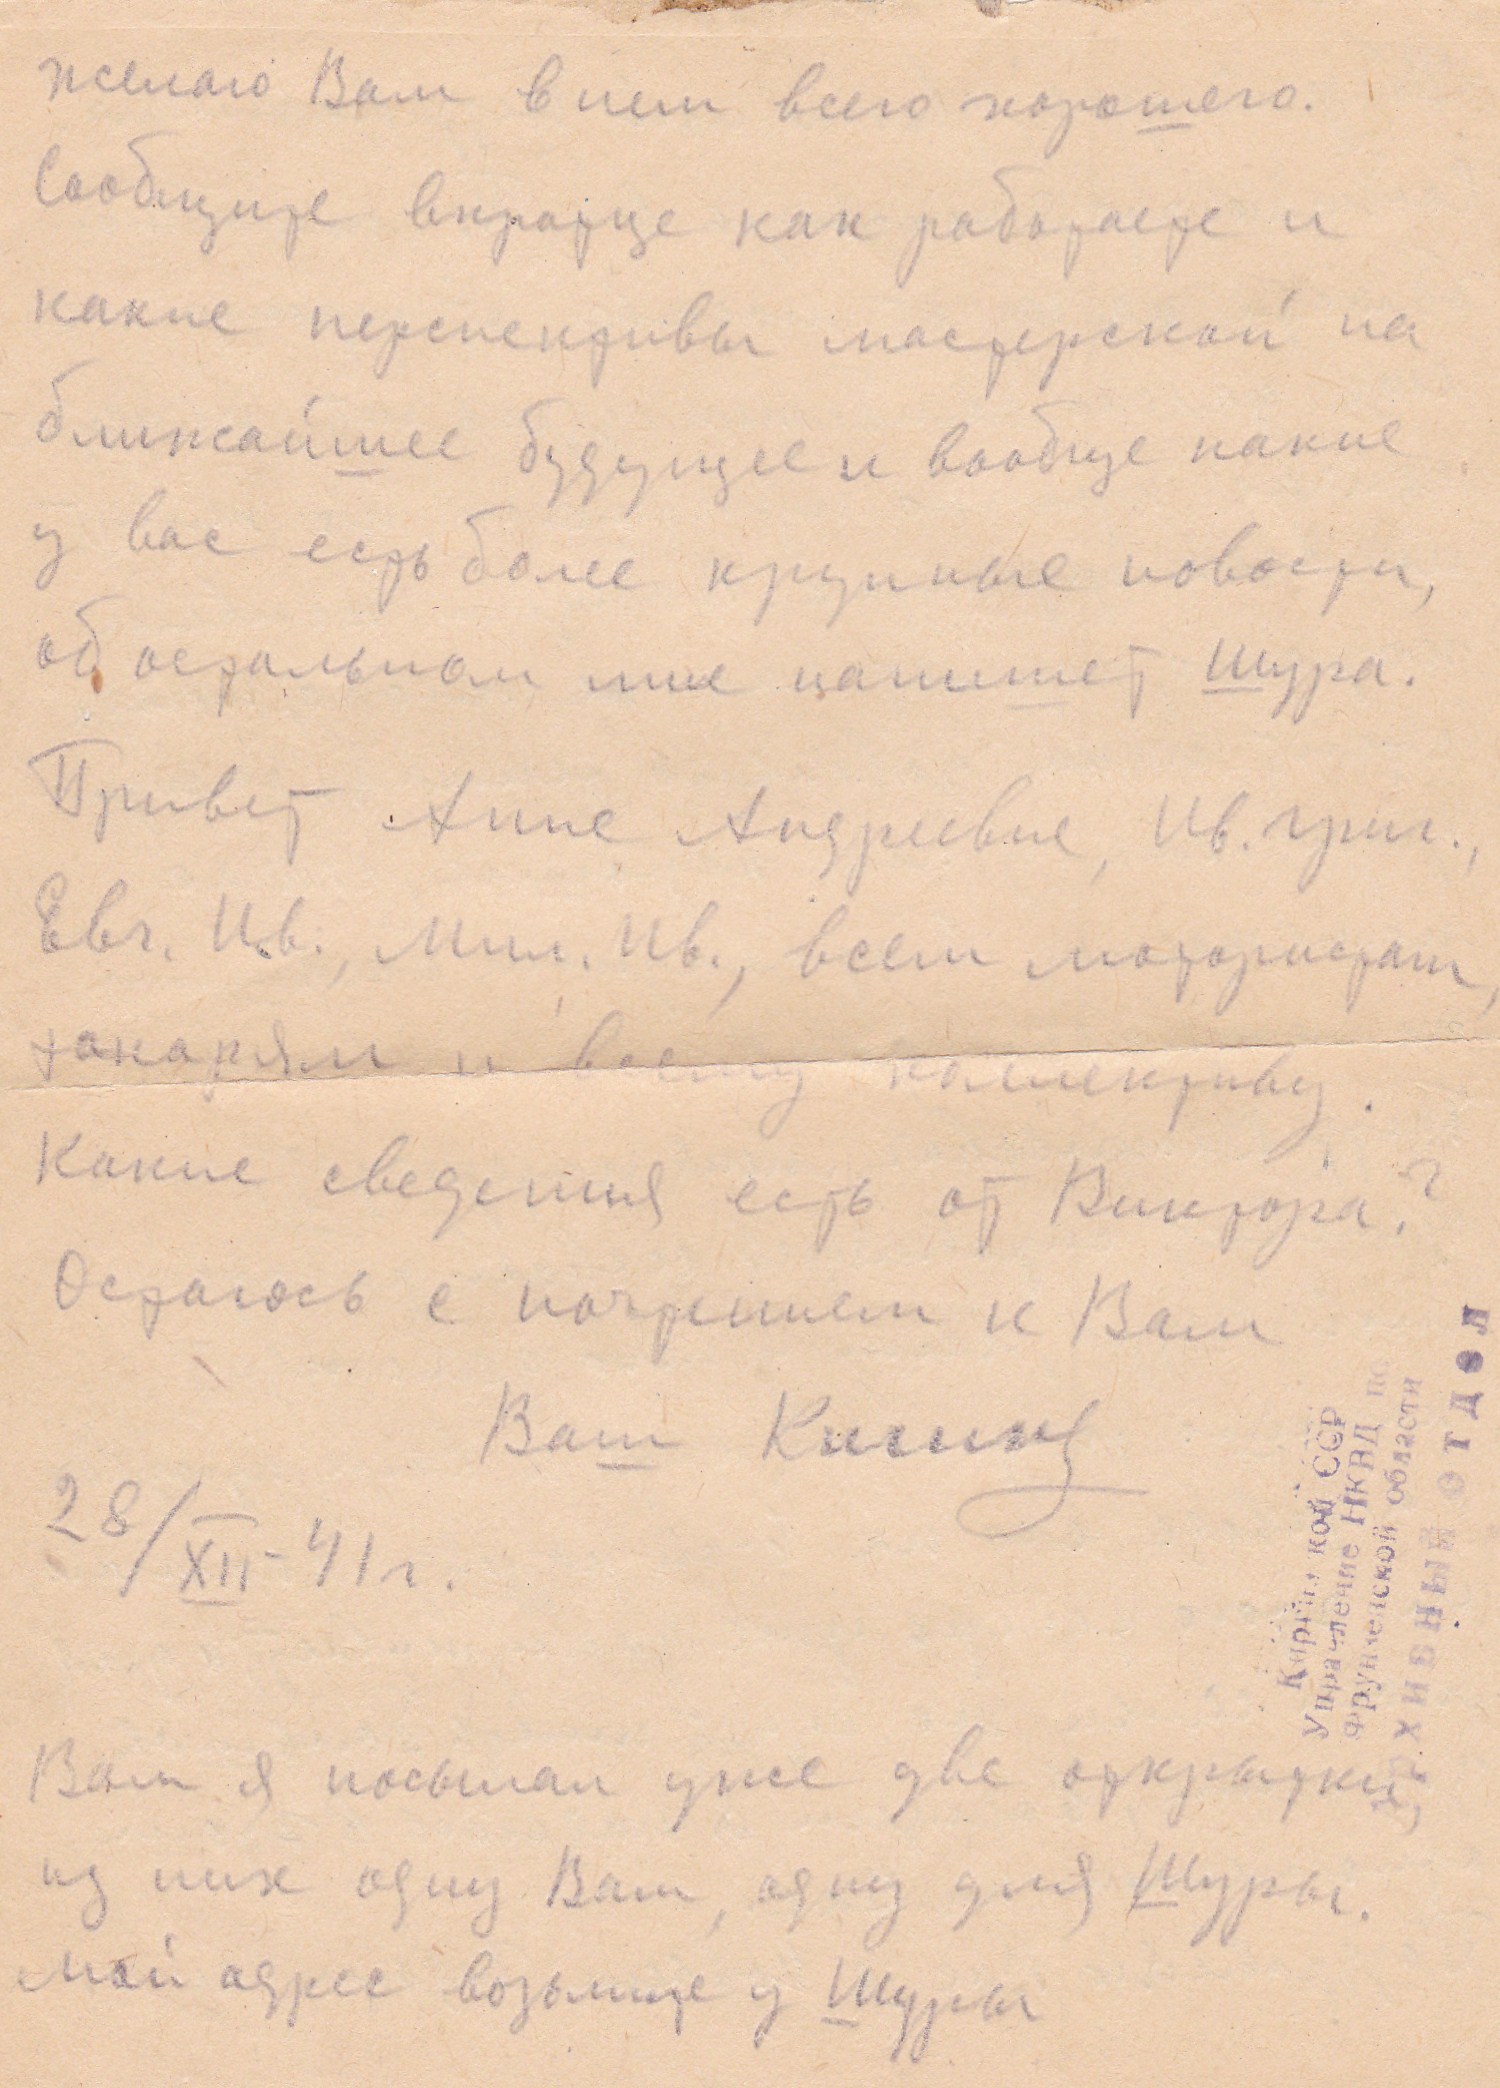 желаю Вам в нем всего хорошего.
Сообщите вкратце как работаете и
какие перспективы мастерской на
ближайшее будущее и вообще какие
у вас есть более крупные новости,
об остальном мне напишет Шура.
Привет Анне Андреевне, Ив. Григ.,
Евг. Ив., Мил. Ив., всем мотористам,
токарям и всему коллективу.
Какие сведения есть от Виктора?
Остаюсь с почтением к Вам
Ваш
28/XII-41г.
Киргизской ССР
Управление НКВД по
Фрунзенской области
Архивный отдел
Вам я посылал уже две открытки,
из них одну Вам, одну для Шуры.
Мой адрес возьмите у Шуры